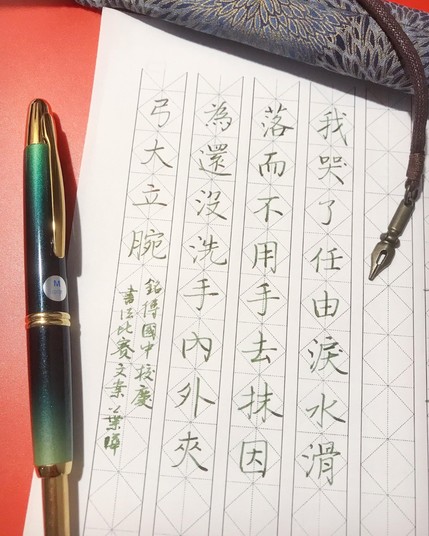 我哭了任由淚水滑
落而不用手去抹因
為還沒洗手內外夾
弓大立腕
銘傳國中校慶
書法比賽文案 葉曄
M